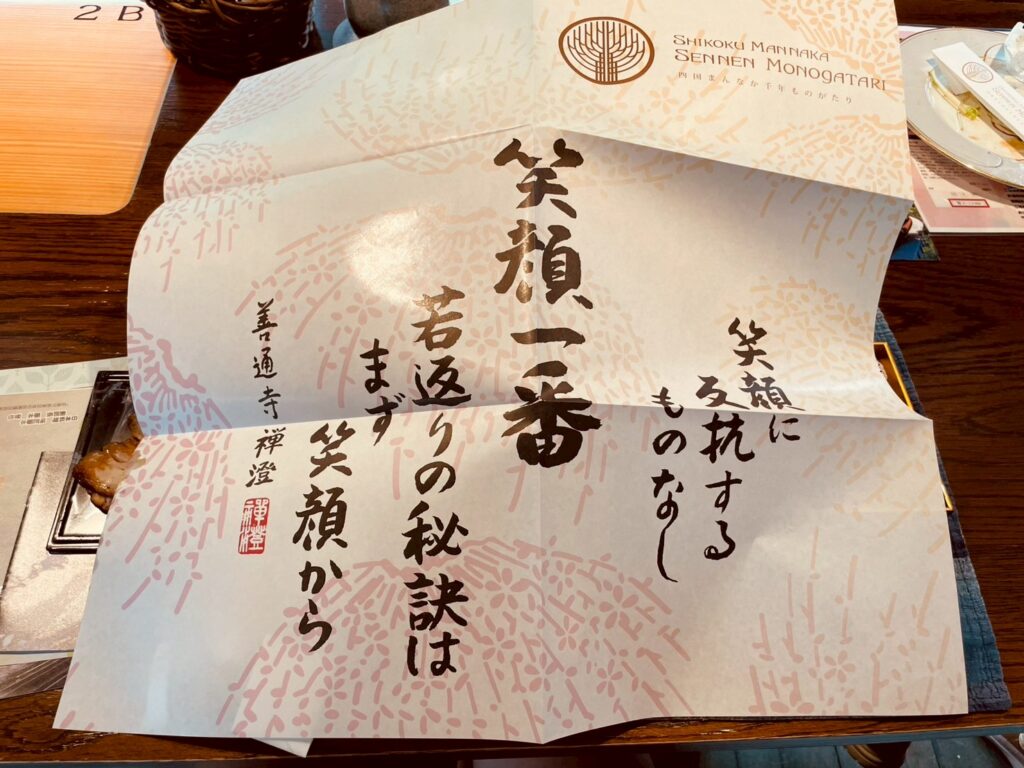 2 B
SHIKOKU MANNAKA
SENNEN MONOGATARI
四国まんなか千年ものがたり
笑顔に
反抗する
ものなし
笑顔一番
若返りの秘訣は
まず
笑顔から
善通寺 禅澄